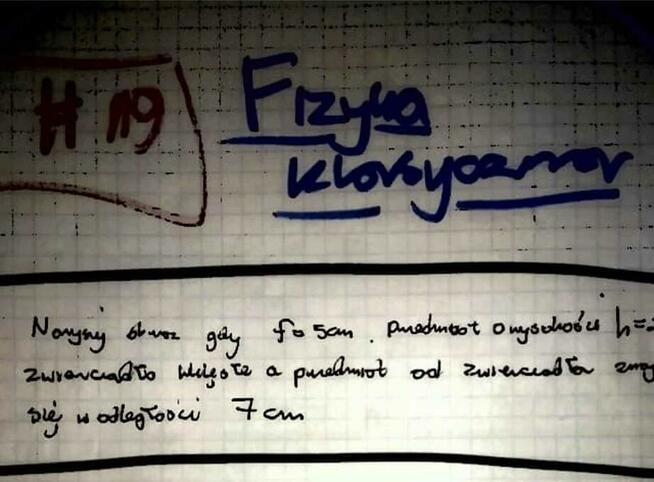 #19
Fizyka
klasyczna
Narysuj obraz gdy f=5cm. Przedmiot o wysokości h=
zwierciadło wklęsłe a przedmiot od zwierciadła
się w odległości 7cm